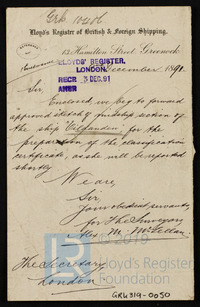 Grk 10406
Lloyd's Register of British & Foreign Shipping.
13 Hamilton Street Greenock
LLOYDS' REGISTER,
LONDON.
December 1891.
RECD 3 DEC. 91
Sir,
Enclosed, we beg to forward
approved sketch of midship section of
the ship for the
preparation of the classification
certificate, as she will be reported
shortly
We are,
Sir
Your obedient servants
for The Surveyors
McLellan
The Secretary
London
Lloyd's Register
Foundation
GRK319-0050